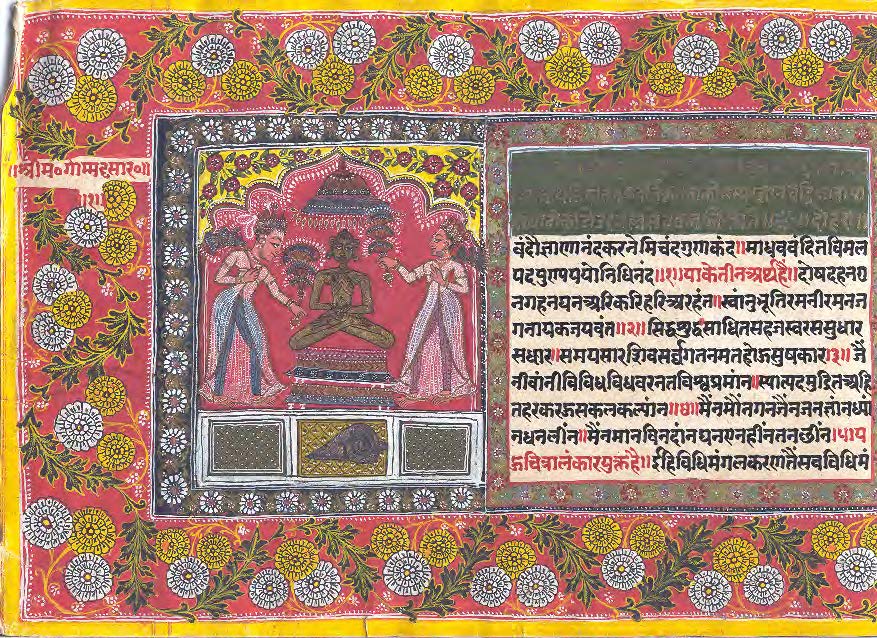 ॥श्रीमि॰गोम्मटसार॰॥
॥१॥
वंदौज्ञाणानंदकरनेमिचंदगुणकंद॥माधववंदितविमल
पदपुण्यपयोनिधिनंद॥१॥याकेतीनअर्थहै॥दोषदहनगु
नगहनघनअरिकरिहरिअरहंत॥स्वानुभूतिरमनीरमनज
गनायकजयवंत॥२॥सिद्धशुद्धसाधितसहजस्वरससुधार
सधार॥समयसारशिवसर्वगतनमतहोऊसुषकार॥३॥जै
नीवांनीविविधविधवरनतविश्वप्रमांन॥स्यात्पदमुद्रितअहि
तहरकरऊसकलकल्यांन॥४॥मैंनमौंनगनजैंनजनज्ञांनध्यां
नधनलीन॥मैंनमानविनदांनघनएनहीनतनछीन।५।य
ऊचित्रालंकारयुक्तहै॥ईहिविधिमंगलकरणतैंसबविधिमं